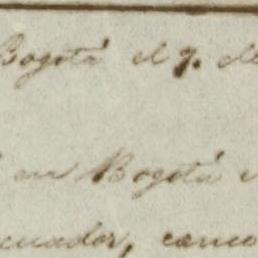 Bogotá el 9. de
en Bogotá
cuador, como